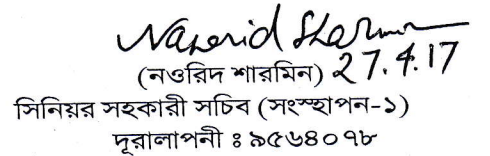 Naherid Sharmin
(নওরিদ শারমিন) 27.4.17
সিনিয়র সহকারী সচিব (সংস্হাপন-১)
দূরালাপনী ঃ ৯৫৬৪০৭৮